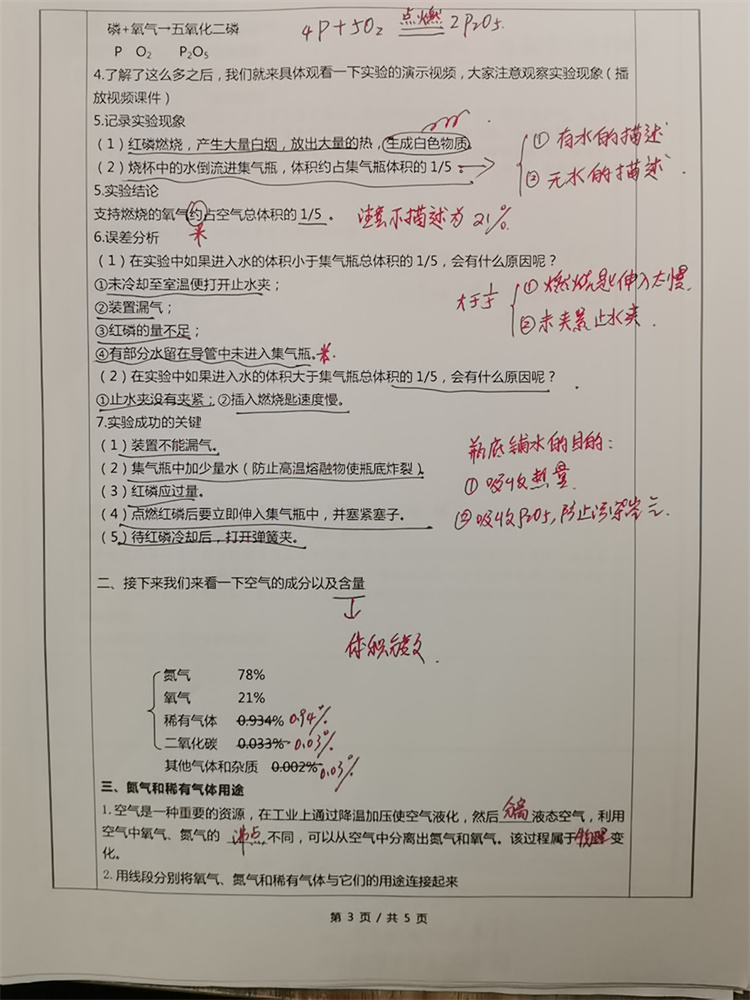 磷+氧气→五氧化二磷 4P+5O₂ 点燃 2P₂O₅.
P O₂ P₂O₅
4.了解了这么多之后，我们就来具体观看一下实验的演示视频，大家注意观察实验现象（播
放视频课件）
5.记录实验现象
（1）红磷燃烧，产生大量白烟，放出大量的热，生成白色物质
（2）烧杯中的水倒流进集气瓶，体积约占集气瓶体积的 1/5。
① 有水的描述
② 无水的描述.
5.实验结论
支持燃烧的氧气约占空气总体积的 1/5 。 注意不描述为 21%.
6.误差分析
（1）在实验中如果进入水的体积小于集气瓶总体积的 1/5，会有什么原因呢？
①未冷却至室温便打开止水夹；
②装置漏气；
③红磷的量不足；
④有部分水留在导管中未进入集气瓶。
大于1/5
① 燃烧匙伸入太慢
② 未夹紧止水夹.
（2）在实验中如果进入水的体积大于集气瓶总体积的 1/5，会有什么原因呢？
①止水夹没有夹紧；②插入燃烧匙速度慢。
7.实验成功的关键
（1）装置不能漏气。
（2）集气瓶中加少量水（防止高温熔融物使瓶底炸裂）
（3）红磷应过量。
（4）点燃红磷后要立即伸入集气瓶中，并塞紧塞子。
（5）待红磷冷却后，打开弹簧夹。
瓶底铺水的目的：
① 吸收热量
② 吸收P₂O₅，防止污染空气.
二、接下来我们来看一下空气的成分以及含量
体积分数.
氮气 78%
氧气 21%
稀有气体 0.934% 0.94%
二氧化碳 0.033% 0.03%
其他气体和杂质 0.002% 0.03%
三、氮气和稀有气体用途
1.空气是一种重要的资源，在工业上通过降温加压使空气液化，然后 分离 液态空气，利用
空气中氧气、氮气的 沸点 不同，可以从空气中分离出氮气和氧气。该过程属于 物理 变
化。
2.用线段分别将氧气、氮气和稀有气体与它们的用途连接起来
第 3 页 / 共 5 页